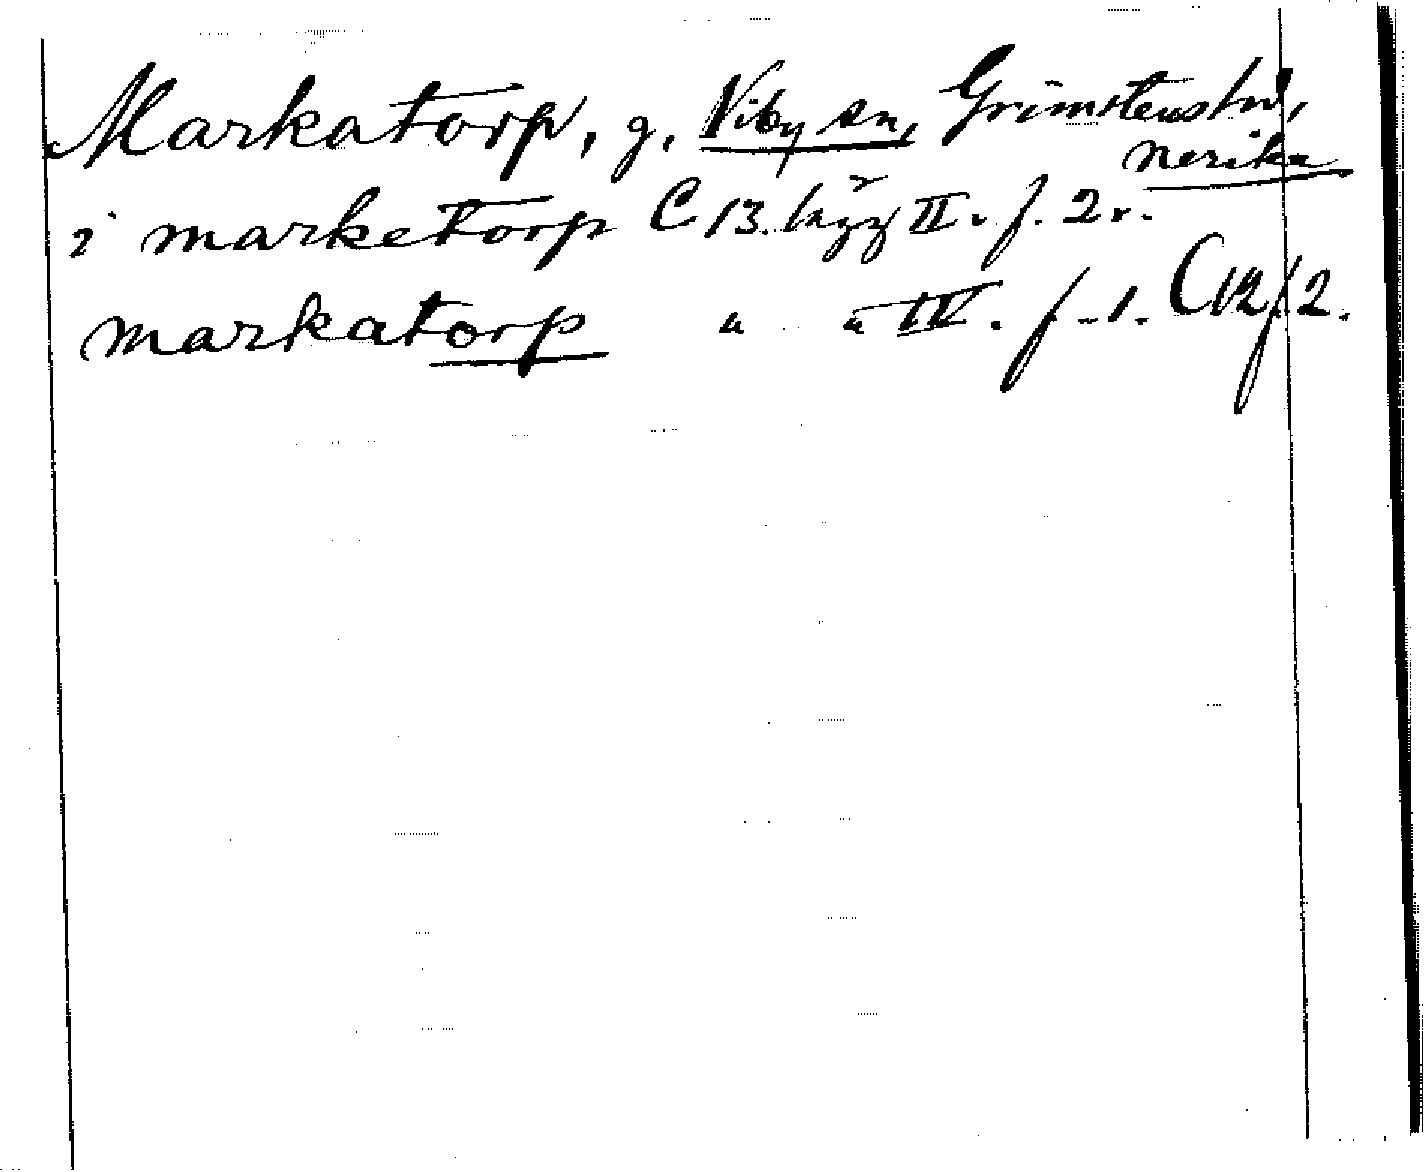 Markatorp, g. Viby sn, Grimstenshd,
Nerike
i marketorp C 13. lägg II. f. 2 r.
markatorp " " IV. f. 1. C 12 f 2.